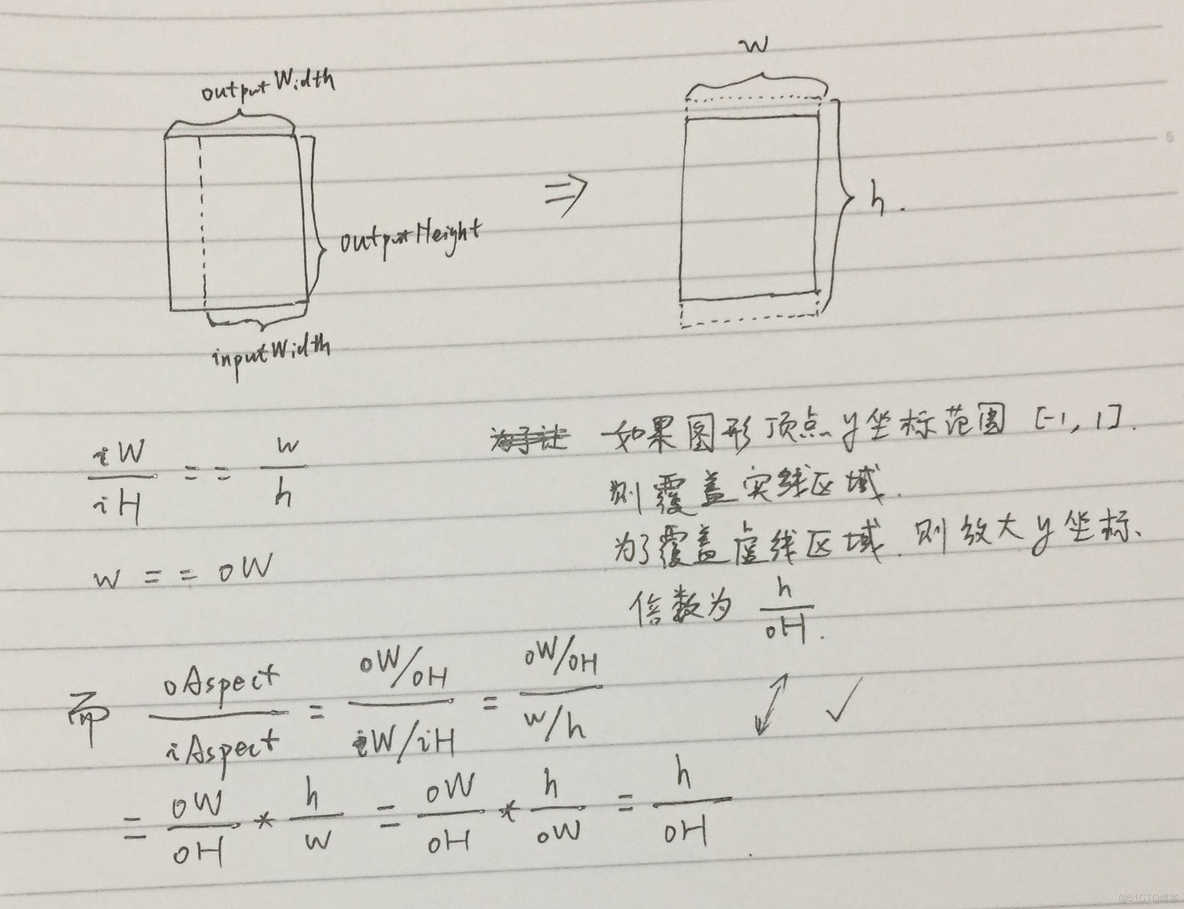 outputWidth
outputHeight
inputWidth
⇒
w
h.
iW/iH == w/h
w == oW
如果图形顶点y坐标范围 [-1, 1].
则覆盖实线区域.
为了覆盖虚线区域. 则放大y坐标、
倍数为 h/oH.
而 oAspect/iAspect = (oW/oH)/(iW/iH) = (oW/oH)/(w/h)
= oW/oH * h/w = oW/oH * h/oW = h/oH